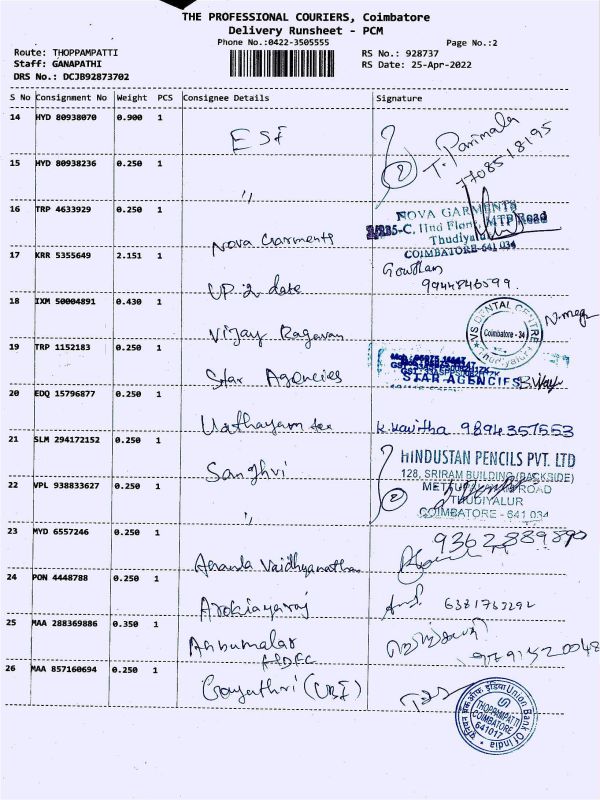 THE PROFESSIONAL COURIERS, Coimbatore
Delivery Runsheet - PCM
Phone No.:0422-3505555
Page No.:2
Route: THOPPAMPATTI
RS No.: 928737
Staff: GANAPATHI
RS Date: 25-Apr-2022
DRS No.: DCJB92873702
S No Consignment No Weight PCS Consignee Details Signature
14 HYD 80938070 0.900 1 ESI
T. Parimala
7708518195
15 HYD 80938236 0.250 1 ,, 2
16 TRP 4633929 0.250 1 Nova Garments
NOVA GARMENTS
IInd Floor, MTP Road
Thudiyalur
COIMBATORE-641 034
17 KRR 5355649 2.151 1 UP 2 date
Gowtham
9944846599
18 IXM 50004891 0.430 1 Vijay Ragavan
VS DENTAL CENTRE
Coimbatore - 34
Thudiyalur
19 TRP 1152183 0.250 1 Star Agencies
STAR AGENCIES
20 EDQ 15796877 0.250 1 Uathayam tex
K. Kavitha 9894357553
21 SLM 294172152 0.250 1 Sanghvi
HINDUSTAN PENCILS PVT. LTD
128, SRIRAM BUILDING (BACKSIDE)
METTUPALAYAM ROAD
THUDIYALUR
COIMBATORE - 641 034
22 VPL 938833627 0.250 1 ,, 2
23 MYD 6557246 0.250 1 Ananda Vaidhyanathan
9362889890
24 PON 4448788 0.250 1 Arokiayaraj
6381763292
25 MAA 288369886 0.350 1 Anbumalar
HDFC
9791520048
26 MAA 857160694 0.250 1 Gayathri (UBI)
यूनियन बैंक ऑफ इंडिया Union Bank Of India
THOPPAMPATTI
COIMBATORE
641017